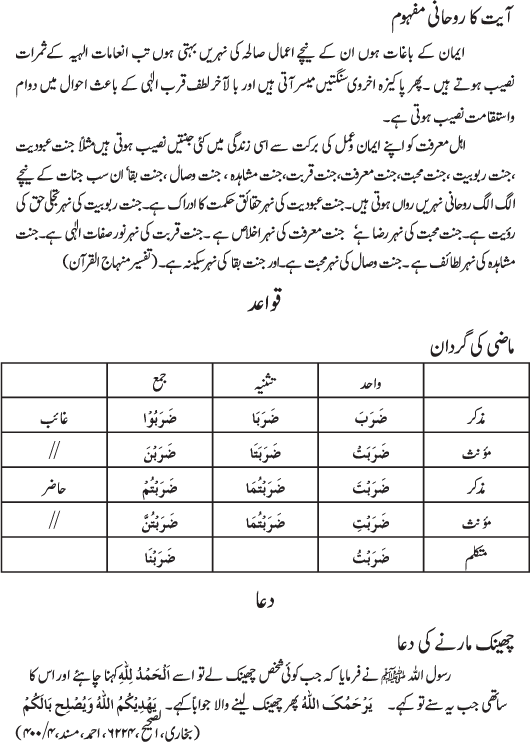 آیت کا روحانی مفہوم
ایمان کے باغات ہوں ان کے نیچے اعمال صالحہ کی نہریں بہتی ہوں تب انعامات الہیہ کے ثمرات
نصیب ہوتے ہیں ۔ پھر پاکیزہ اخروی سنگتیں میسر آتی ہیں اور بالآخر لطف قرب الٰہی کے باعث احوال میں دوام
و استقامت نصیب ہوتی ہے۔
اہل معرفت کو اپنے ایمان و عمل کی برکت سے اسی زندگی میں کئی جنتیں نصیب ہوتی ہیں مثلاً جنت عبودیت
،جنت ربوبیت ،جنت محبت،جنت معرفت،جنت قربت،جنت مشاہدہ ، جنت وصال ، جنت بقاً ان سب جنات کے نیچے
الگ الگ روحانی نہریں رواں ہوتی ہیں۔جنت عبودیت کی نہر حقائق حکمت کا ادراک ہے۔جنت ربوبیت کی نہر تجلی حق کی
رؤیت ہے۔جنت محبت کی نہر رضا ہے ٔ جنت معرفت کی نہر اخلاص ہے ۔ جنت قربت کی نہر نور صفات الٰہی ہے۔جنت
مشاہدہ کی نہر لطائف ہے ۔ جنت وصال کی نہر محبت ہے۔اور جنت بقا کی نہر سکینہ ہے۔ (تفسیر منہاج القرآن)
قواعد
ماضی کی گردان
واحد تثنیہ جمع
مذکر ضَرَبَ ضَرَبَا ضَرَبُوْا غائب
مؤنث ضَرَبَتْ ضَرَبَتَا ضَرَبْنَ //
مذکر ضَرَبْتَ ضَرَبْتُمَا ضَرَبْتُمْ حاضر
مؤنث ضَرَبْتِ ضَرَبْتُمَا ضَرَبْتُنَّ //
متکلم ضَرَبْتُ ضَرَبْنَا
دعا
چھینک مارنے کی دعا
رسول اللہ ﷺ نے فرمایا کہ جب کوئی شخص چھینک لے تو اسے اَلْحَمْدُ لِلّٰہِ کہنا چاہئے اور اس کا
ساتھی جب یہ سنے تو کہے۔ یَرْحَمُکَ اللّٰہُ پھر چھینک لینے والا جواباً کہے۔ یَھْدِیْکُمُ اللّٰہُ وَیُصْلِحُ بَالَکُمْ
(بخاری، الصحیح، ۶۲۲۴، احمد، مسند، ۴/۴۰۰)